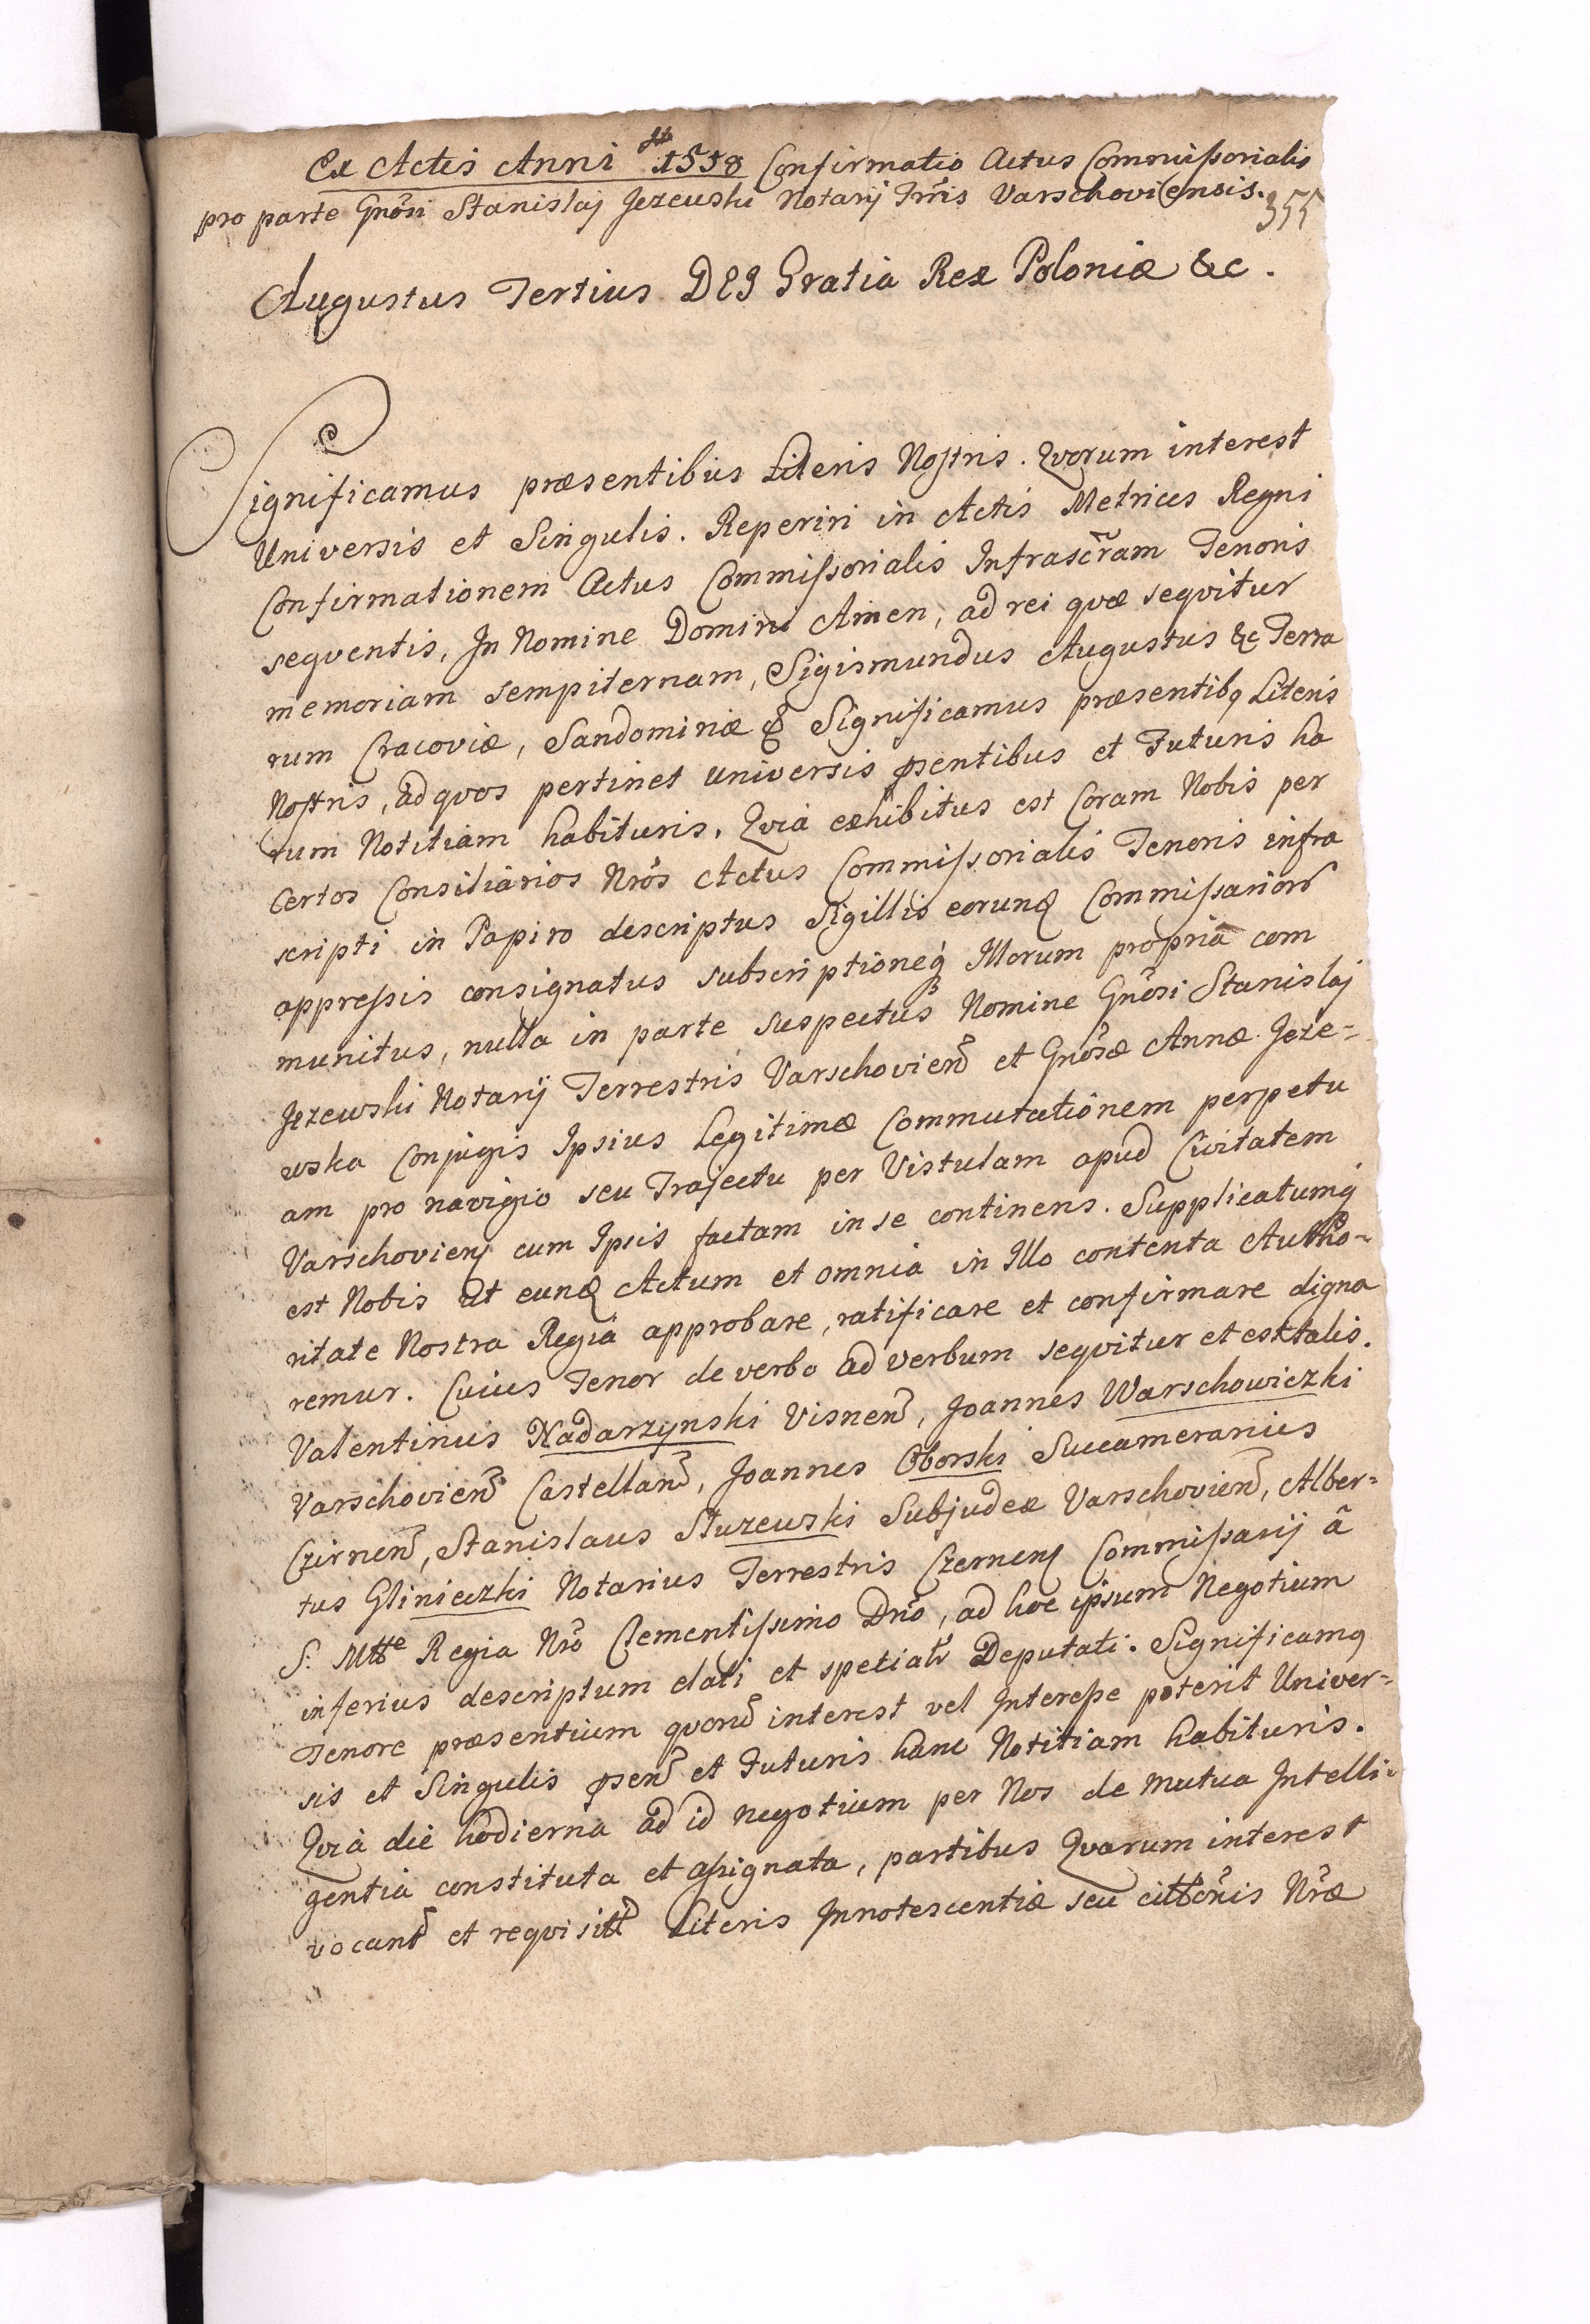 Ex Actis Anni 1558 Confirmatio Actus Commissorialis
pro parte Gnõsi Stanislaj Jezewski Notarij Trrñis Varschoviensis.
355
Augustus Tertius DEI Gratia Rex Poloniæ &c.
Significamus præsentibus Literis Nostris. Qvorum interest
Universis et Singulis. Reperiri in Actis Metrices Regni
Confirmationem Actus Commissorialis Infrascr̃am Tenoris
seqventis, In Nomine Domini Amen, ad rei qvæ seqvitur
memoriam sempiternam, Sigismundus Augustus &c Terra
rum Cracoviæ, Sandomiriæ & Significamus præsentibq Literis
Nostris, ad qvos pertinet universis psentibus et Futuris ha
rum Notitiam habituris. Qvia exhibitus est Coram Nobis per
certos Consiliarios Nrõs Actus Commissorialis Tenoris infra
scripti in Papiro descriptus Sigillis eorund Commissarior
appressis consignatus subscriptioneq Illorum propriã com
munitus, nulla in parte suspectus Nomine Gnõsi Stanislaj
Jezewski Notarij Terrestris Varschovien̄ et Gnõsæ Annæ Jeze-
wska Conjugis Ipsius Legitimæ Commutationem perpetu
am pro navigio seu Trajectu per Vistulam apud Civitatem
Varschovien cum Ipsis factam in se continens. Supplicatumq
est Nobis ut eund Actum et omnia in Illo contenta Autho-
ritate Nostra Regia approbare, ratificare et confirmare digna
remur. Cuius Tenor de verbo ad verbum seqvitur et est talis.
Valentinus Nadarzynski Visnen̄, Joannes Warschowiczki
Varschovien̄ Castellan̄, Joannes Oborski Succamerarius
Czirnen̄, Stanislaus Sluzewski Subjudex Varschovien̄, Alber-
tus Glinieczki Notarius Terrestris Czernen Commissarij ã
S. Mtte Regia Nrõ Clementissimo Dnõ, ad hoc ipsum Negotium
inferius descriptum dati et spetialr Deputati. Significamq
Tenore præsentium qvorū interest vel Interesse poterit Univer-
sis et Singulis psen̄ et Futuris hanc Notitiam habituris.
Qvia die hodierna ad id negotium per Nos de mutua Intelli-
gentia constituta et assignata, partibus Qvarum interest
vocant̄ et reqvisitt̄ Literis Innotescentiæ seu cittõnis Nræ